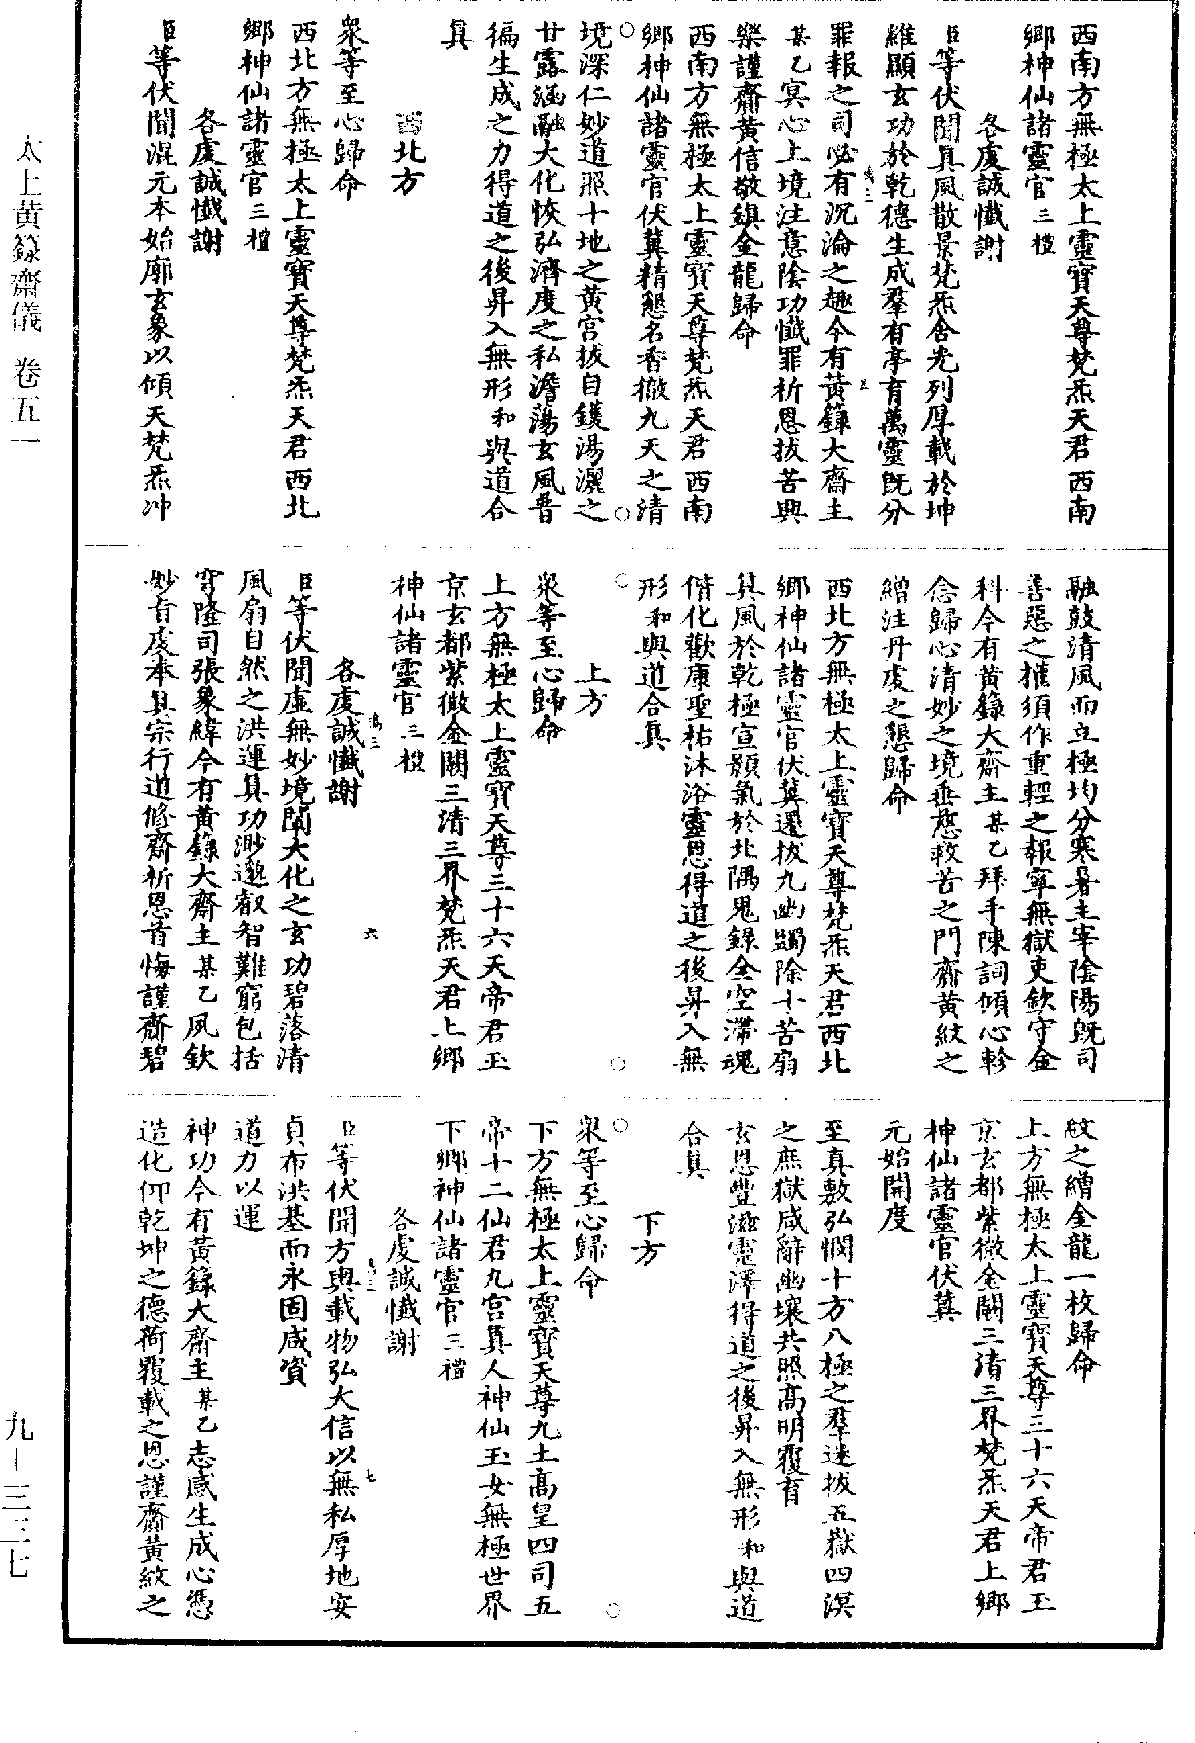 西南方無極太上靈寶天尊梵炁天君西南
鄉神仙諸靈官三禮
各虔誠懺謝
臣等伏聞真風散景梵炁含光列厚載於坤
維顯玄功於乾德生成羣有亭育萬靈既分
罪報之司必有沉淪之趣今有黃籙大齋主
某乙冥心上境注意陰功懺罪祈恩拔苦與
樂謹齎黃信敬鎮金龍歸命
西南方無極太上靈寶天尊梵炁天君西南
鄉神仙諸靈官伏冀精懇名香徹九天之清
境深仁妙道照十地之黃宮拔自鑊湯灑之
甘露絪融大化恢弘濟度之私澹蕩玄風普
徧生成之力得道之後昇入無形和與道合
真
西北方
衆等至心歸命
西北方無極太上靈寶天尊梵炁天君西北
鄉神仙諸靈官三禮
各虔誠懺謝
臣等伏聞混元本始廓玄象以傾天梵炁沖
融鼓清風而立極均分寒暑主宰陰陽既司
善惡之權須作重輕之報寧無獄吏欽守金
科今有黃籙大齋主某乙拜手陳詞傾心軫
念歸心清妙之境垂慈救苦之門齎黃紋之
繒注丹虔之懇歸命
西北方無極太上靈寶天尊梵炁天君西北
鄉神仙諸靈官伏冀還拔九幽蠲除十苦扇
真風於乾極宣顥氣於北隅鬼錄全空滯魂
偕化歡康聖祐沐浴靈恩得道之後昇入無
形和與道合真
上方
衆等至心歸命
上方無極太上靈寶天尊三十六天帝君玉
京玄都紫微金闕三清三界梵炁天君上鄉
神仙諸靈官三禮
各虔誠懺謝
臣等伏聞虛無妙境闡大化之玄功碧落清
風扇自然之洪運真功渺邈叡智難窮包括
穹隆司張象緯今有黃籙大齋主某乙夙欽
妙旨虔奉真宗行道修齋祈恩首悔謹齎碧
紋之繒金龍一枚歸命
上方無極太上靈寶天尊三十六天帝君玉
京玄都紫微金闕三清三界梵炁天君上鄉
神仙諸靈官伏冀
元始開度
至真敷弘憫十方八極之羣迷拔五嶽四溟
之庶獄咸辭幽壤共照高明覆育
玄恩豐滋霑澤得道之後昇入無形和與道
合真
下方
衆等至心歸命
下方無極太上靈寶天尊九土高皇四司五
帝十二仙君九宮真人神仙玉女無極世界
下鄉神仙諸靈官三禮
各虔誠懺謝
臣等伏聞方輿載物弘大信以無私厚地安
貞布洪基而永固咸資
道力以運
神功今有黃籙大齋主某乙志感生成心憑
造化仰乾坤之德荷覆載之恩謹齎黃紋之
太上黃籙齋儀 卷五一
九—三三七